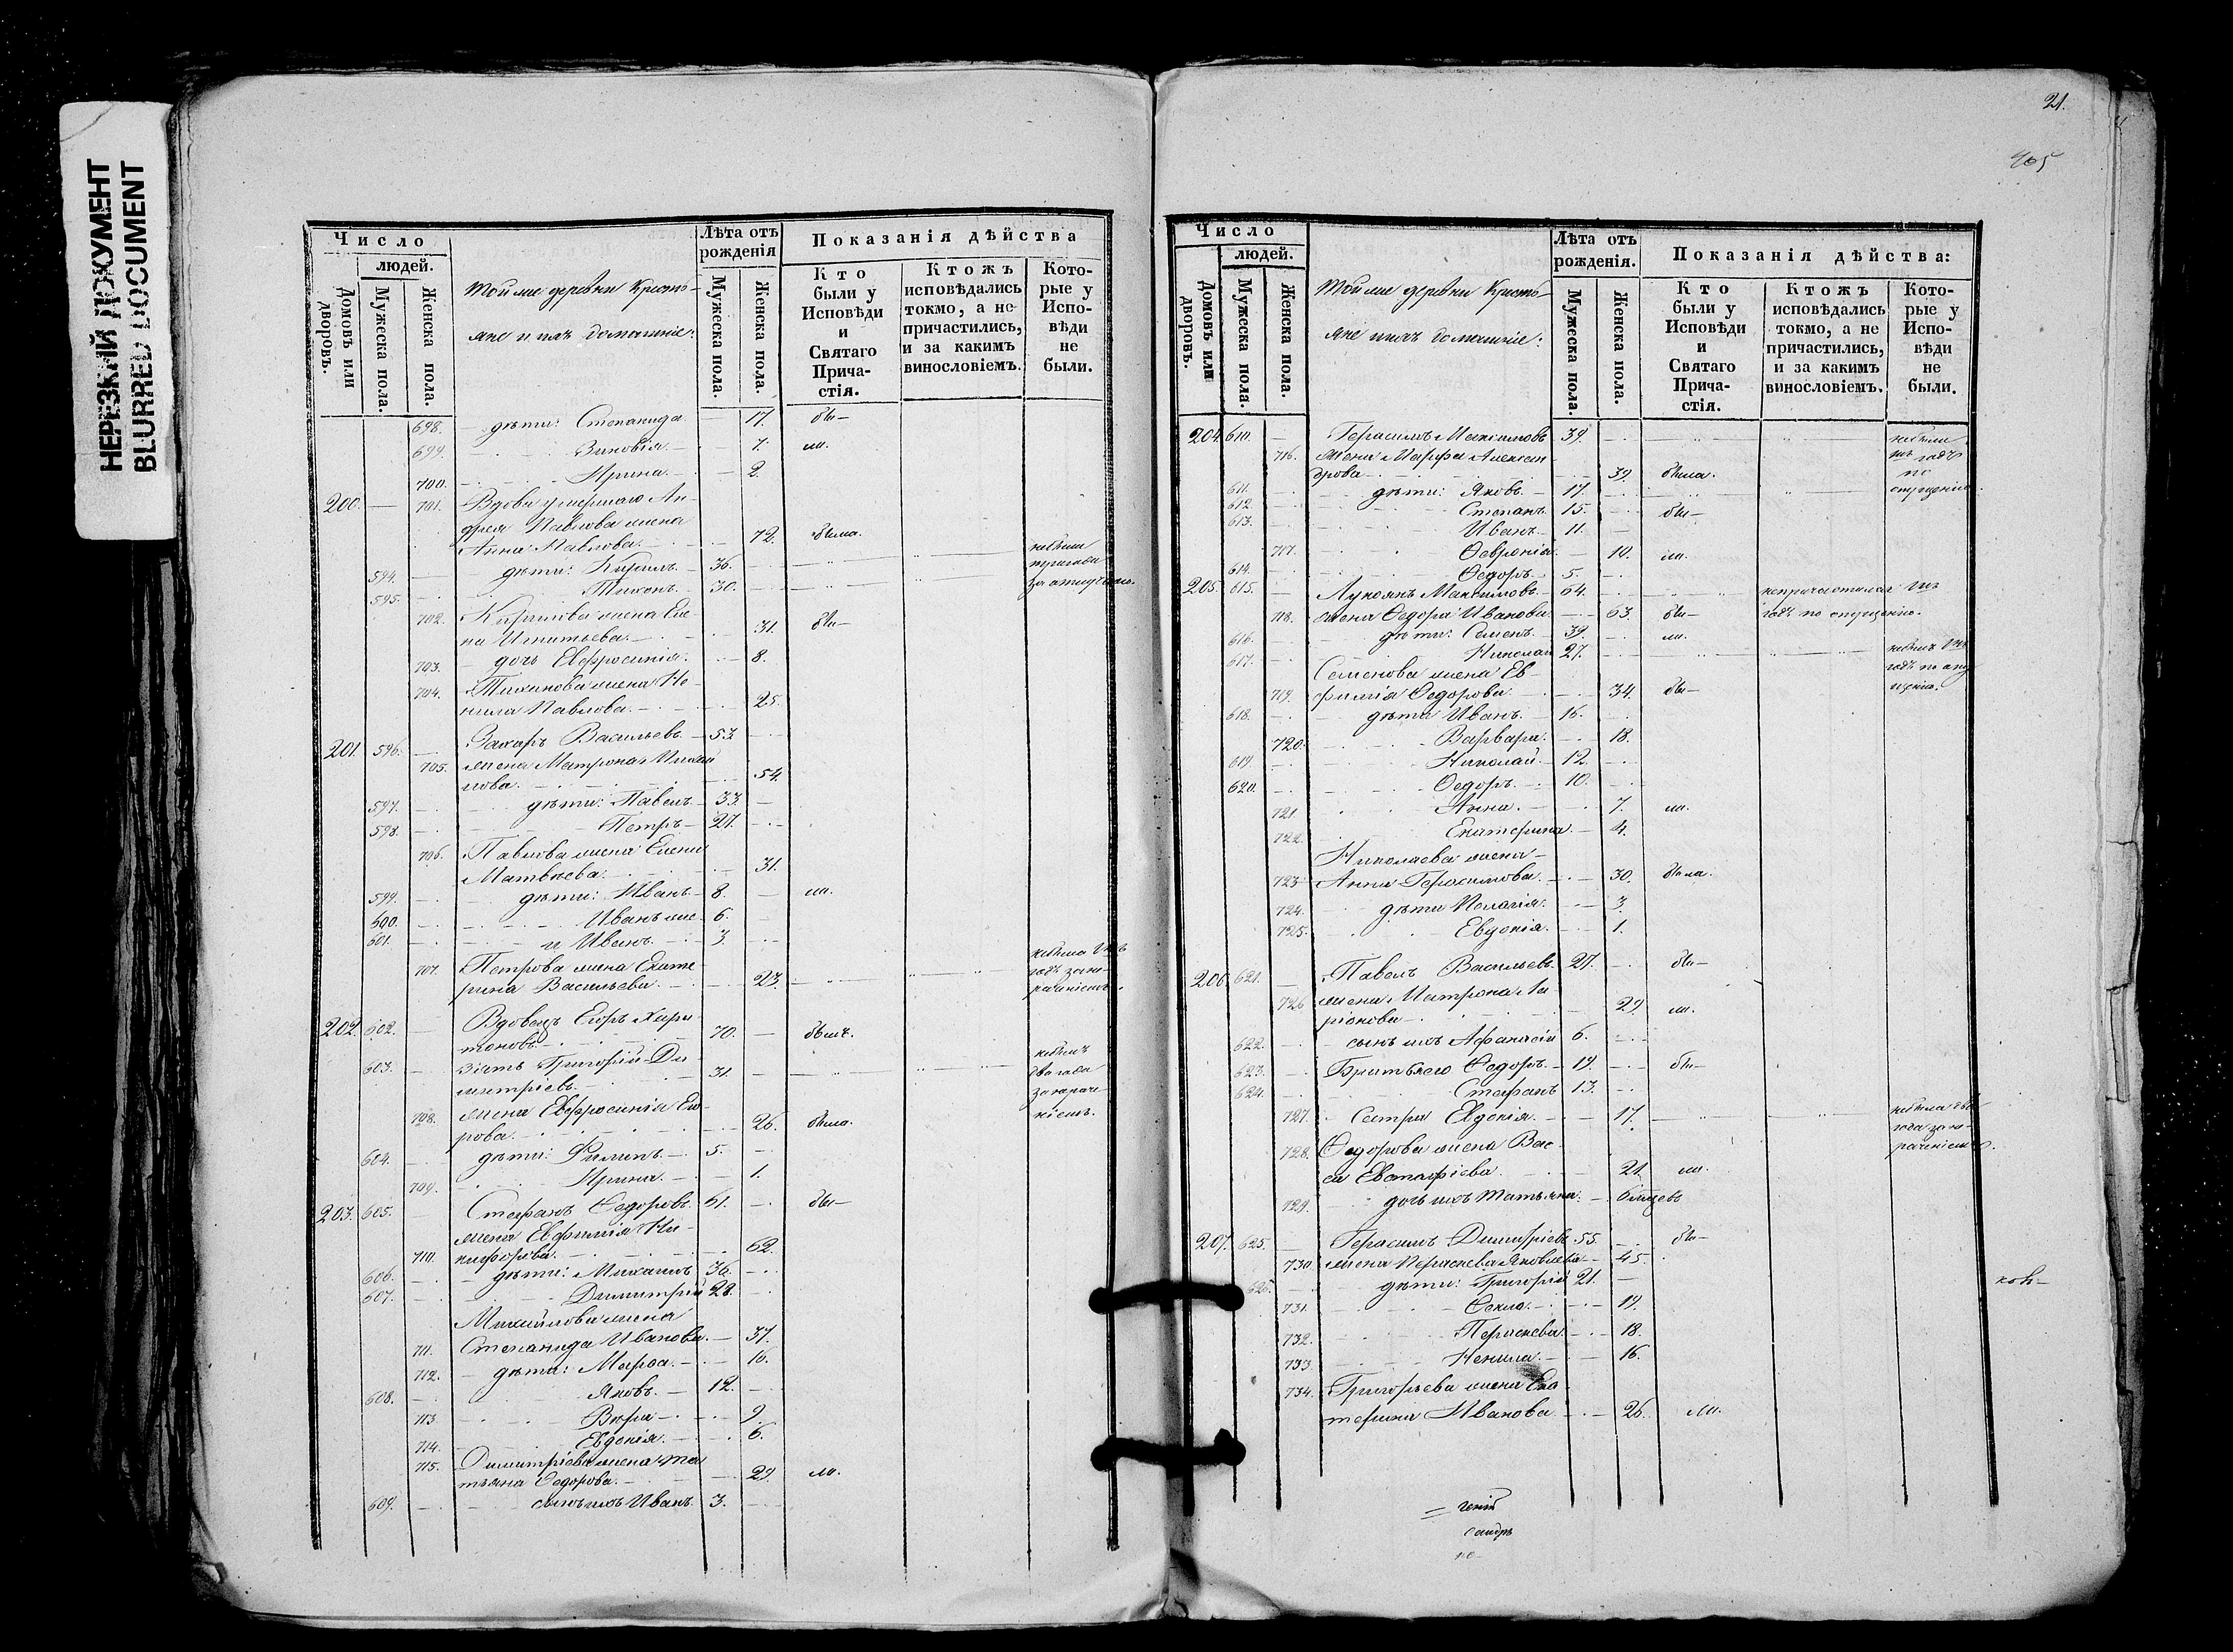 НЕРЕЗКИЙ ДОКУМЕНТ
BLURRED DOCUMENT
Число
людей.
Домовъ или дворовъ.
Мужеска пола.
Женска пола.
Тойже деревни Кресть-
яне и ихъ домашніе:
Лѣта отъ рожденія
Мужеска пола.
Женска пола.
Показанія дѣйства
Кто были у Исповѣди и Святаго Прича-стія.
Ктожъ исповѣдались токмо, а не причастились, и за какимъ винословіемъ.
Кото-рые у Испо-вѣди не были.
698. дѣти: Степанида 17. бы-
699. Зиновія 7. ли.
700. Ирина 2.
200. 701. Вдова умершаго Ан-
дрея Павлова жена
Анна Павлова 72. была.
594. дѣти: Кирилъ 36.
595. Тихонъ 30.
702. Кирилова жена Еле-
на Игнатьева 31. бы-
703. дочь Евфросинія 8.
704. Тихонова жена Не-
нила Павлова 25.
201. 596. Захаръ Васильевъ 53.
705. жена Матрона Михай
лова 54.
597. дѣти: Павелъ 33.
598. Петръ 27.
706. Павлова жена Елена
Матвѣева 31.
599. дѣти: Иванъ 8. ли.
600. Иванъ же 6.
601. и Иванъ 3.
707. Петрова жена Екате-
рина Васильева 23.
202. 602. Вдовецъ Егоръ Хари-
тоновъ 70. былъ.
603. зять Григорій Ди-
митріевъ 31.
небылъ
два года
708. жена Евфросинія Его-
рова 26. была.
604. дѣти: Филипъ 5.
709. Ирина 1.
203. 605. Стефанъ Ѳедоровъ 61. бы-
710. жена Евфимія Ни-
кифорова 62.
606. дѣти: Михаилъ 36.
607. Димитрій 28.
Михайлова жена
711. Степанида Иванова 37.
712. дѣти: Марѳа 16.
608. Яковъ 12.
713. Вѣра 9.
714. Евдокія 6.
715. Димитріева жена Та
тьяна Ѳедорова 29. ли.
609. сынъ ихъ Иванъ 3.
21.
Число
людей.
Домовъ или дворовъ.
Мужеска пола.
Женска пола.
Тойже деревни Кресть-
яне и ихъ домашніе:
Лѣта отъ рожденія.
Мужеска пола.
Женска пола.
Показанія дѣйства:
Кто были у Исповѣди и Святаго Прича-стія.
Ктожъ исповѣдались токмо, а не причастились, и за какимъ винословіемъ.
Кото-рые у Испо-вѣди не были.
204. 610. Герасимъ Максимовъ 39.
716. жена Марфа Алексан-
дрова 39. была.
611. дѣти: Яковъ 17.
612. Степанъ 15. бы-
613. Иванъ 11.
717. Ѳевронія 10. ли.
614. Ѳедоръ 5.
205. 615. Лукоянъ Максимовъ 64.
непричастилъ 1нъ
годъ по опущенію.
718. жена Ѳедора Иванова 63. бы-
616. дѣти: Семенъ 39. ли.
617. Николай 27.
Семенова жена Ев-
719. фимія Ѳедорова 34. бы-
618. дѣти Иванъ 16.
720. Варвара 18.
619. Николай 12.
620. Ѳедоръ 10.
721. Анна 7. ли.
722. Екатерина 4.
Николаева жена
723. Анна Герасимова 30. была.
724. дѣти Пелагія 3.
725. Евдокія 1.
206. 621. Павелъ Васильевъ 27. бы-
726. жена Матрона Ла-
ріонова 29. ли.
622. сынъ ихъ Афанасій 6.
623. Братья его Ѳедоръ 19. бы-
624. Стефанъ 13.
727. Сестра Евдокія 17.
728. Ѳедорова жена Вас-
са Евстафіева 21. ли.
729. дочь ихъ Татьяна 6 мцевъ
207. 625. Герасимъ Димитріевъ 55. бы-
730. жена Параскева Яковлева 45.
626. дѣти: Григорій 21.
731. Ѳекла 19.
732. Параскева 18.
733. Ненила 16.
734. Григорьева жена Ека-
терина Иванова 26. ли.